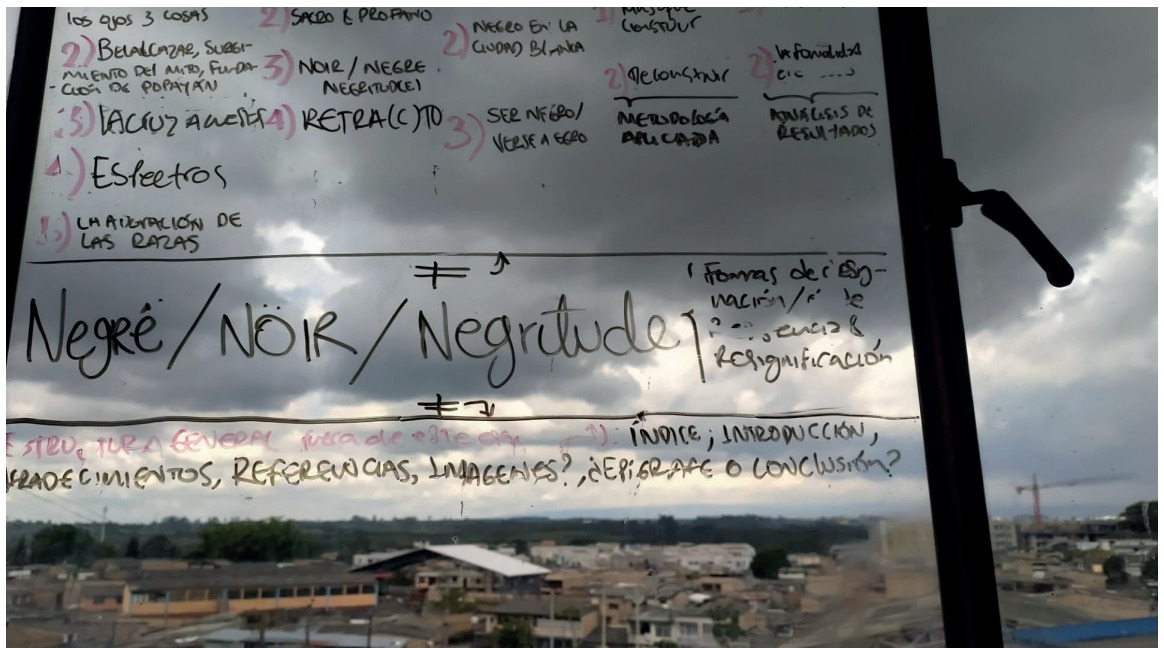 los ojos 3 COSAS
2) BELALCAZAR, SURGI-
MIENTO DEL MITO, FUNDA-
CIÓN DE POPAYÁN
3)
4) Espectros
LAS RAZAS
2) SACRO & PROFANO
3) NOIR / NEGRE
NEGRITUDE
4) RETRA(C)TO
2) NEGRO EN LA
CIUDAD BLANCA
3) SER NEGRO/
VERSE NEGRO
CONSTRUIR
2) Deconstruir
METODOLOGÍA
APLICADA
2)
ANÁLISIS DE
RESULTADOS
≠
Negré / NÖIR / Negritude
Formas de resig-
nación/
Resignificación
≠
ESTRUCTURA GENERAL fuera de este 1) ÍNDICE; INTRODUCCIÓN,
AGRADECIMIENTOS, REFERENCIAS, IMAGENES?, ¿EPIGRAFE O CONCLUSIÓN?